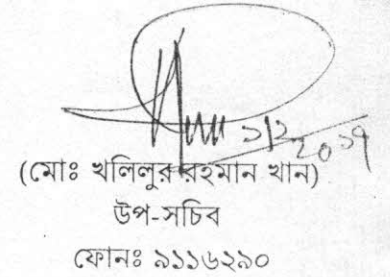 ১/২
২০১৭
(মোঃ খলিলুর রহমান খান)
উপ-সচিব
ফোনঃ ৯১১৬২৯০